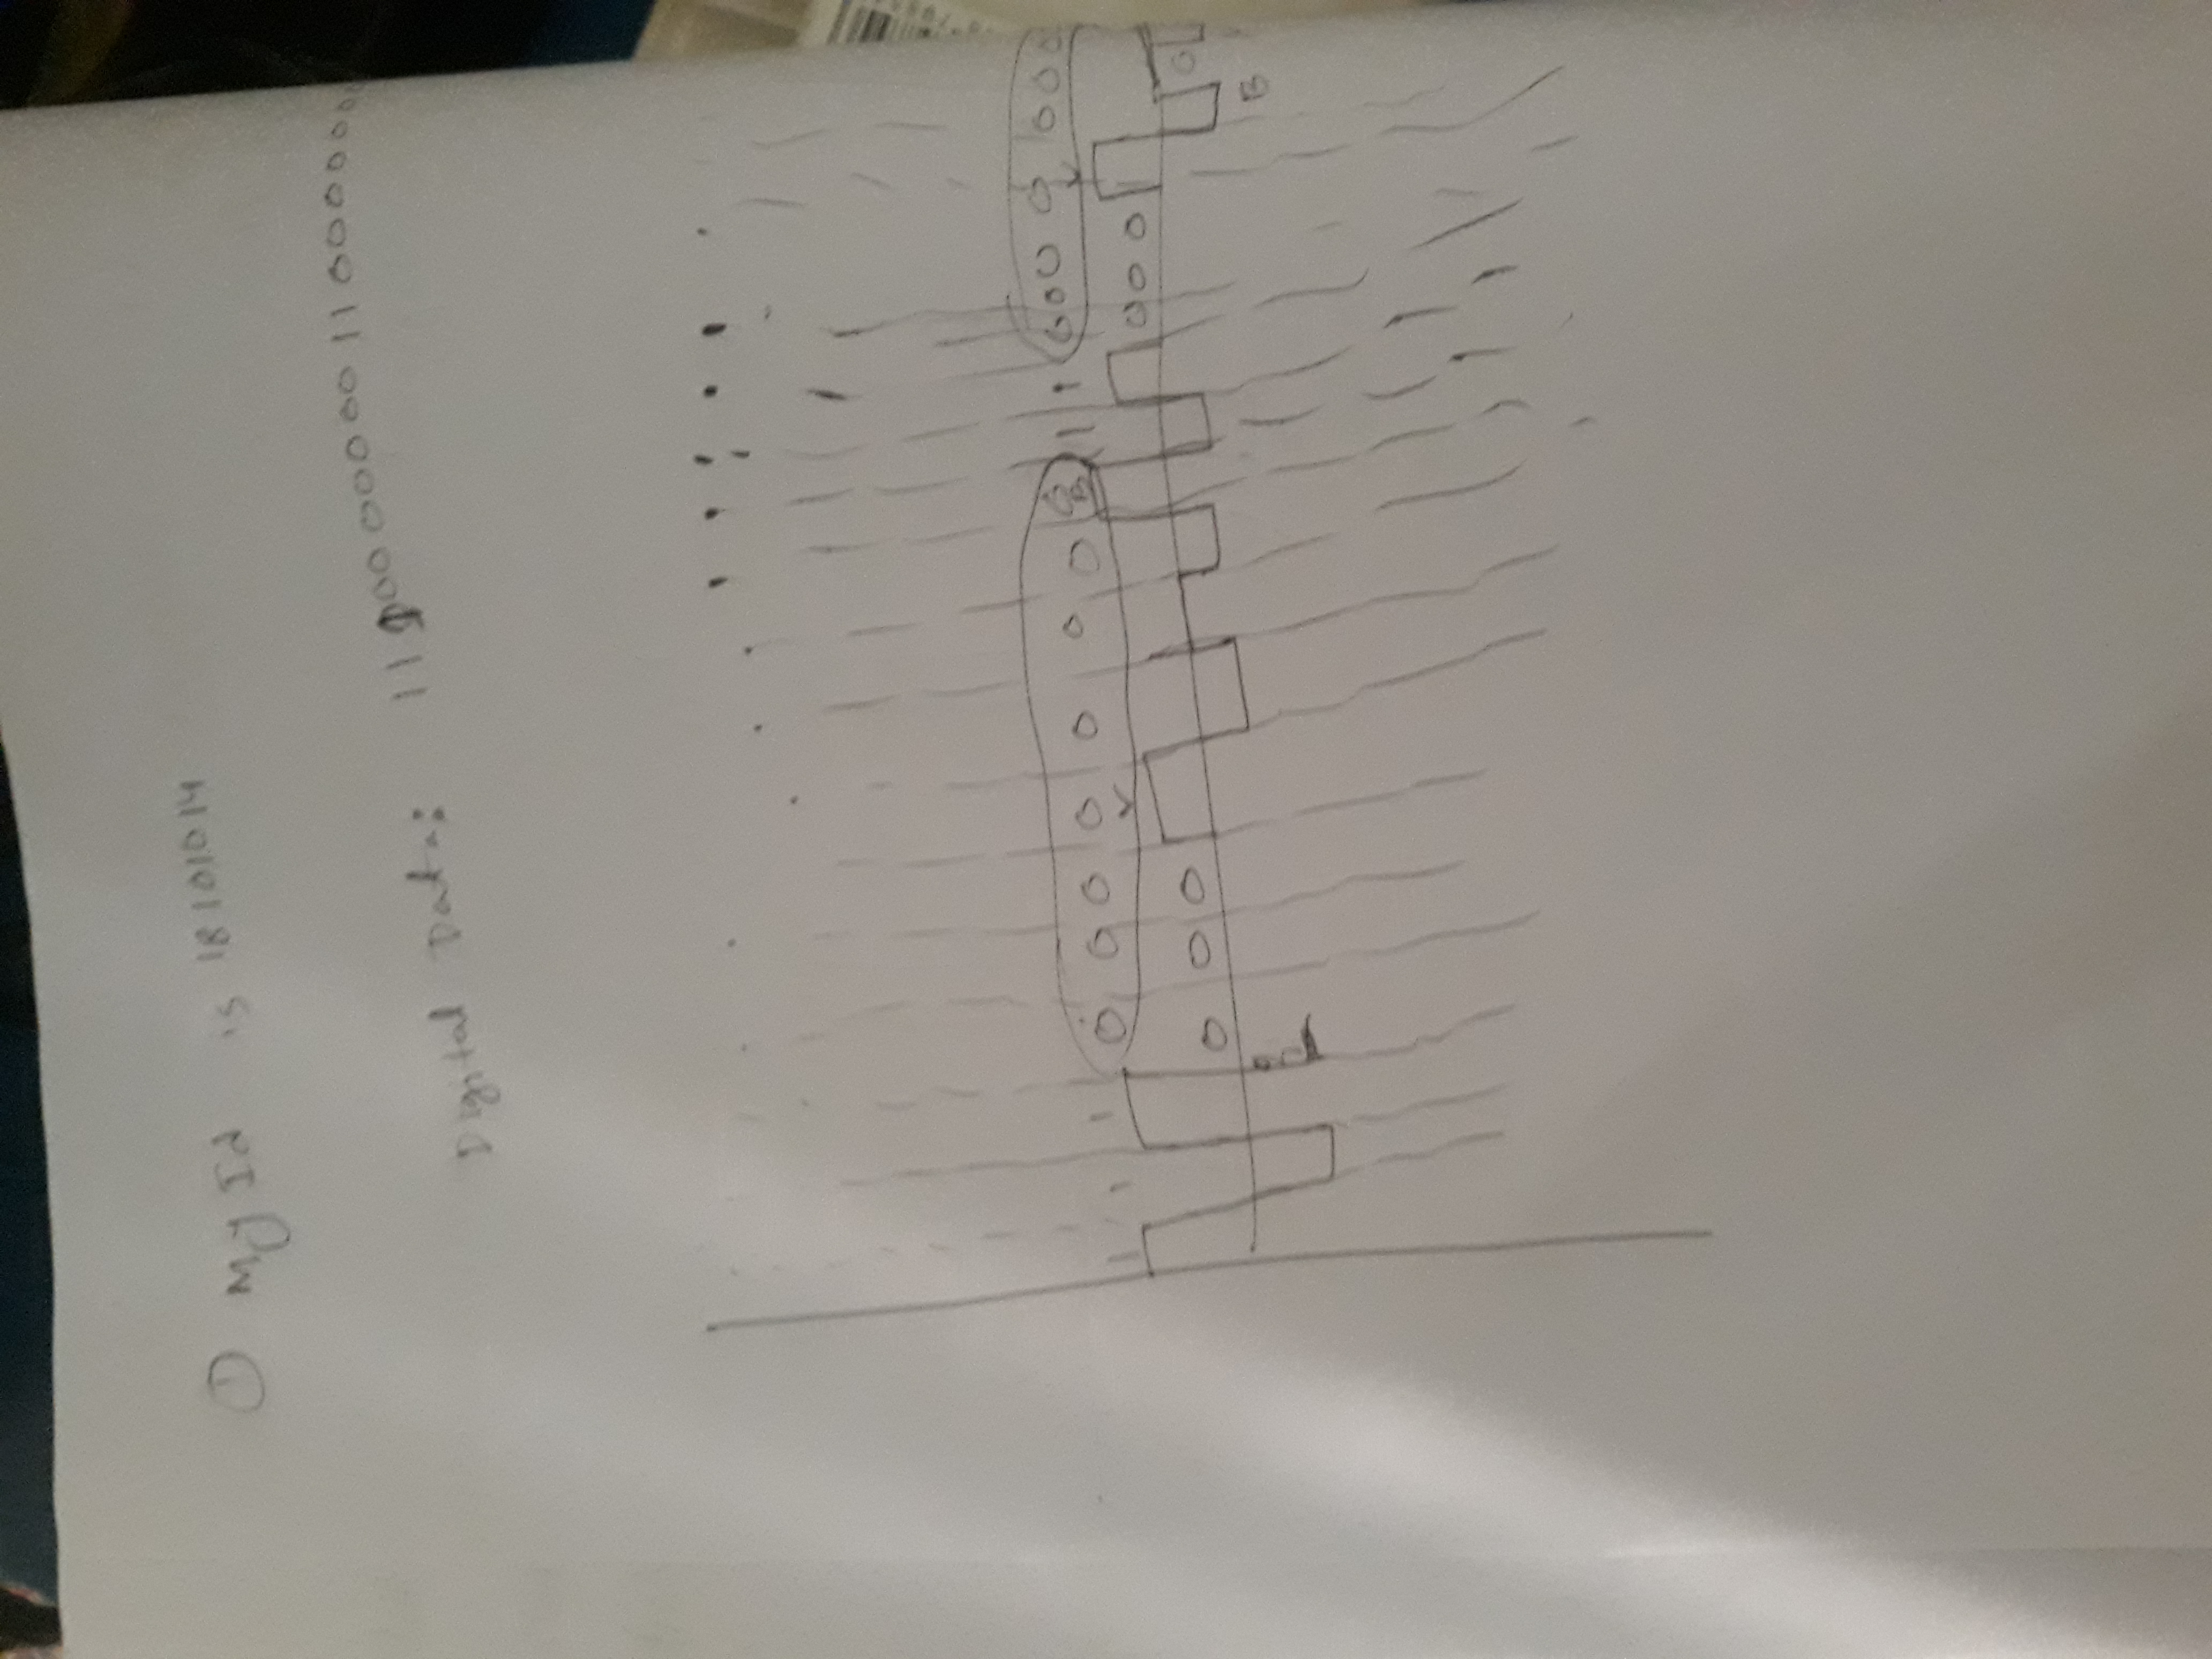 ① My Id is 18101014
Digital Data: 11100000000110000000
1 1 1 0 0 0 0 0 0 0 0 1 1 0 0 0 0 0 0 0
B
V V
0 0 0 0 0 0 0
B